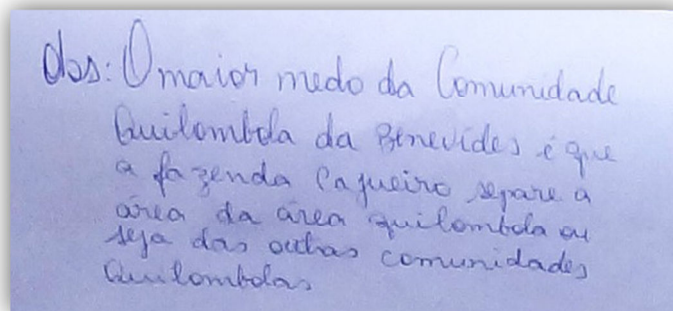 Obs: O maior medo da Comunidade
Quilombola da Benevides é que
a fazenda Cajueiro separe a
área da área quilombola ou
seja das outras comunidades
Quilombolas